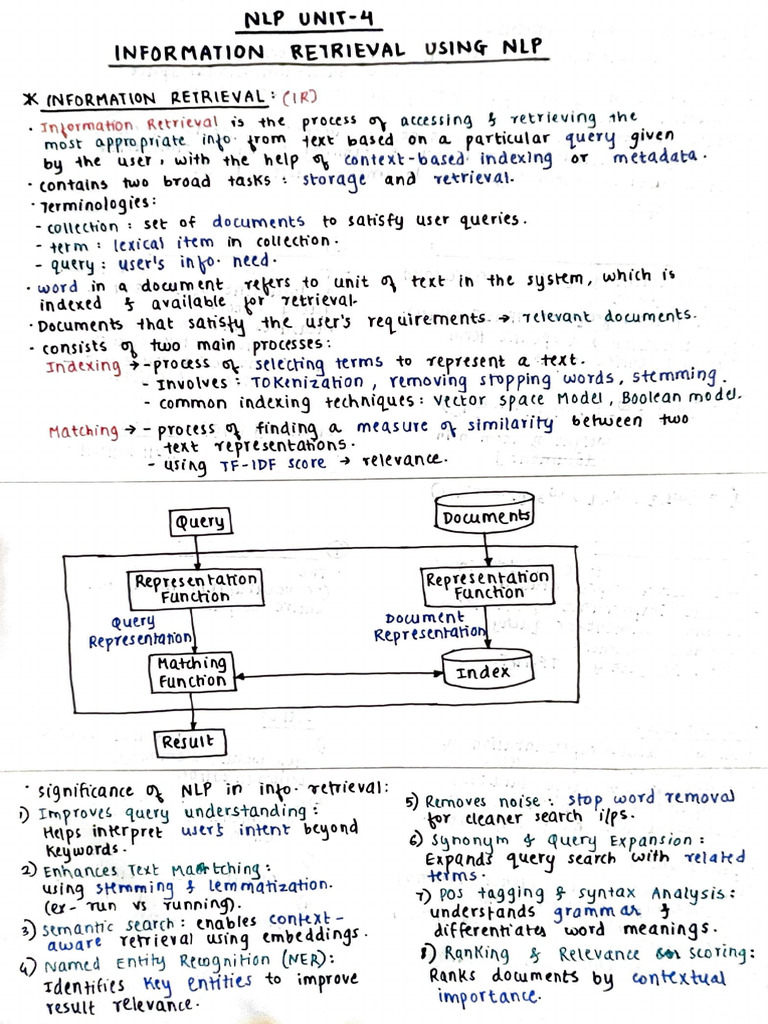 NLP UNIT-4
INFORMATION RETRIEVAL USING NLP
* INFORMATION RETRIEVAL: (IR)
· Information Retrieval is the process of accessing & retrieving the
most appropriate info. from text based on a particular query given
by the user, with the help of context-based indexing or metadata.
· contains two broad tasks: storage and retrieval.
· Terminologies:
- collection: set of documents to satisfy user queries.
- term: lexical item in collection.
- query: user's info. need.
· word in a document refers to unit of text in the system, which is
indexed & available for retrieval.
· Documents that satisfy the user's requirements → relevant documents.
· consists of two main processes:
Indexing → - process of selecting terms to represent a text.
- Involves: Tokenization, removing stopping words, stemming.
- common indexing techniques: vector space Model, Boolean model.
Matching → - process of finding a measure of similarity between two
text representations.
- using TF-IDF score → relevance.
Query
Documents
Representation
Function
Representation
Function
Query
Representation
Document
Representation
Matching
Function
Index
Result
· significance of NLP in info. retrieval:
1) Improves query understanding:
Helps interpret user's intent beyond
keywords.
2) Enhances Text Matching:
using stemming & lemmatization.
(ex- run vs running).
3) Semantic search: enables context-
aware retrieval using embeddings.
4) Named Entity Recognition (NER):
Identifies key entities to improve
result relevance.
5) Removes noise: stop word removal
for cleaner search i/ps.
6) Synonym & Query Expansion:
Expands query search with related
terms.
7) POS tagging & syntax Analysis:
understands grammar &
differentiates word meanings.
8) Ranking & Relevance scoring:
Ranks documents by contextual
importance.